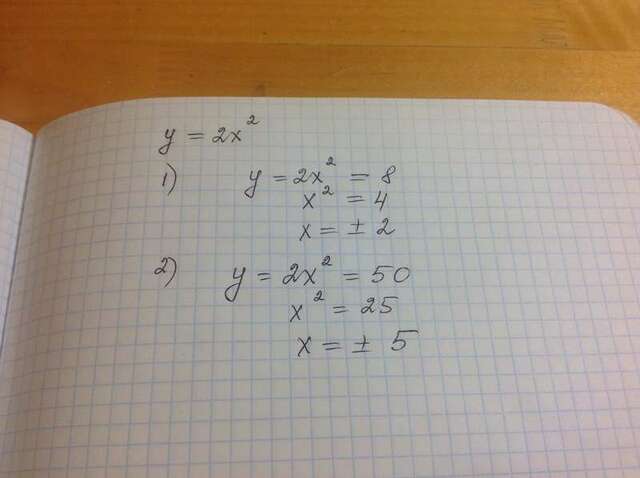 y = 2x²
1) y = 2x² = 8
x² = 4
x = ± 2
2) y = 2x² = 50
x² = 25
x = ± 5